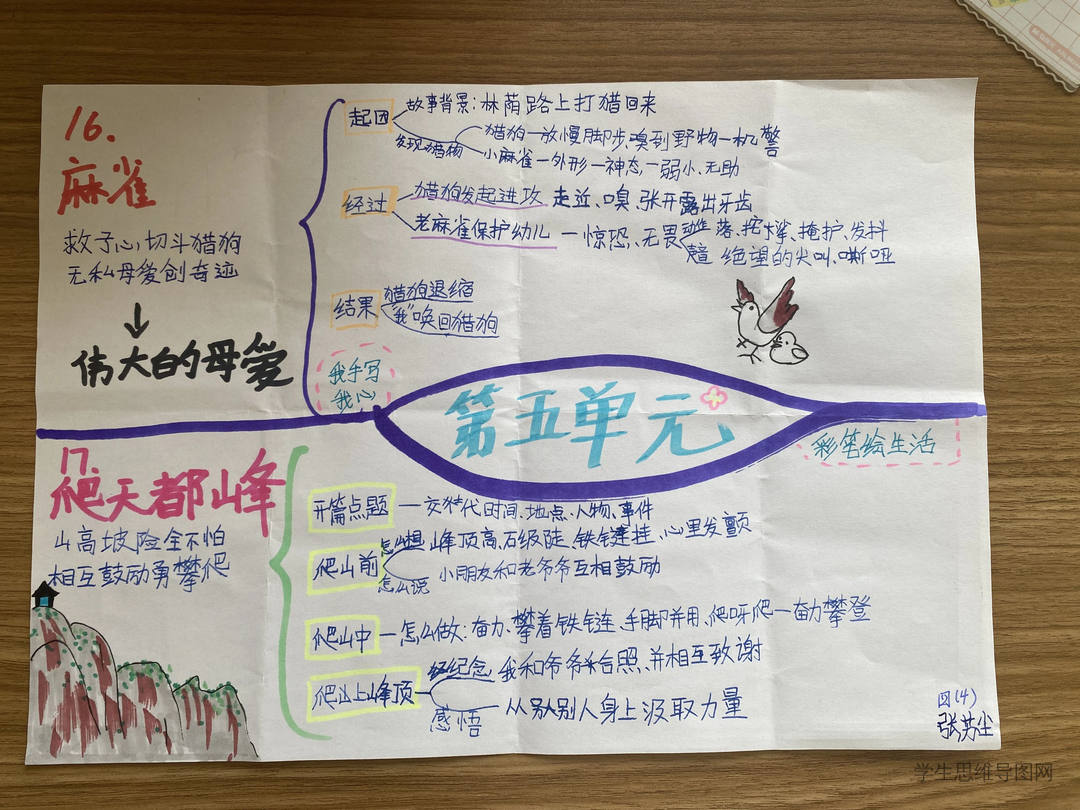 16.
麻雀
救子心,切斗猎狗
无私母爱创奇迹
↓
伟大的母爱
起因
故事背景:林荫路上打猎回来
发现猎物
猎狗—放慢脚步,嗅到野物—机警
小麻雀—外形—神态—弱小、无助
经过
猎狗发起进攻 走近、嗅、张开露出牙齿
老麻雀保护幼儿—惊恐、无畏
动作 落、挓挲、掩护、发抖
绝望的尖叫、嘶哑
结果
猎狗退缩
“我”唤回猎狗
我手写
我心
第五单元
彩笔绘生活
17.
爬天都峰
山高坡险全不怕
相互鼓励勇攀爬
开篇点题—交代时间、地点、人物、事件
爬山前
怎么想 峰顶高、石级陡、铁链挂,心里发颤
怎么说 小朋友和老爷爷互相鼓励
爬山中—怎么做:奋力、攀着铁链、手脚并用、爬呀爬—奋力攀登
爬上峰顶
纪念 我和爷爷合照、并相互致谢
感悟 从别人身上汲取力量
四(4)
张芳尘
学生思维导图网